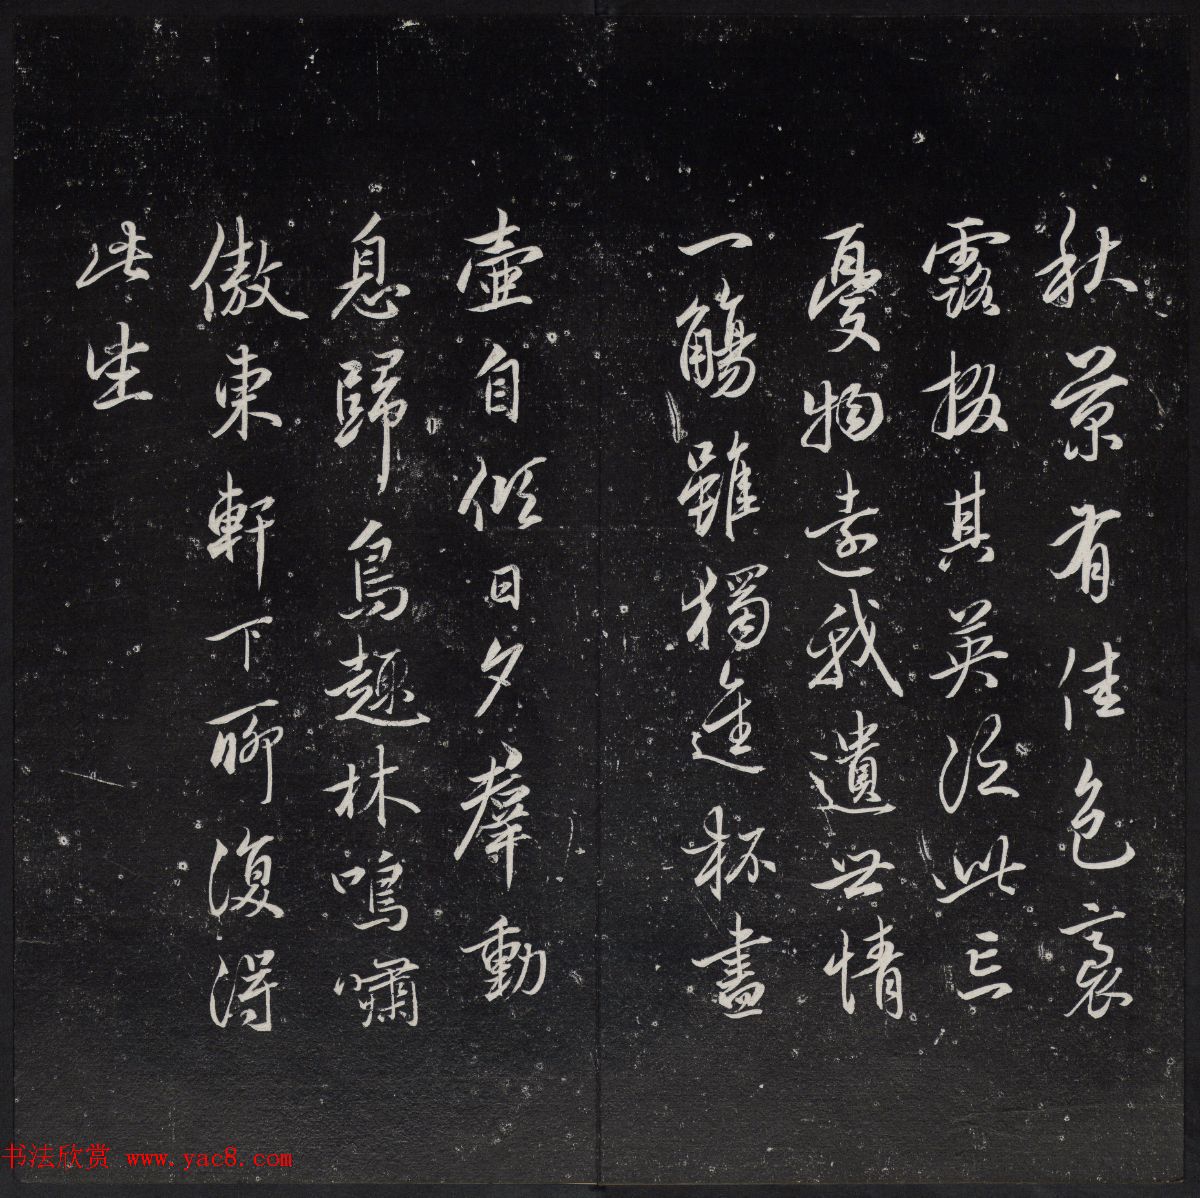 秋菊有佳色裛
露掇其英泛此忘
憂物遠我遺世情
一觴雖獨進杯盡
壺自傾日夕羣動
息歸鳥趣林鳴嘯
傲東軒下聊復得
此生
书法欣赏 www.yac8.com